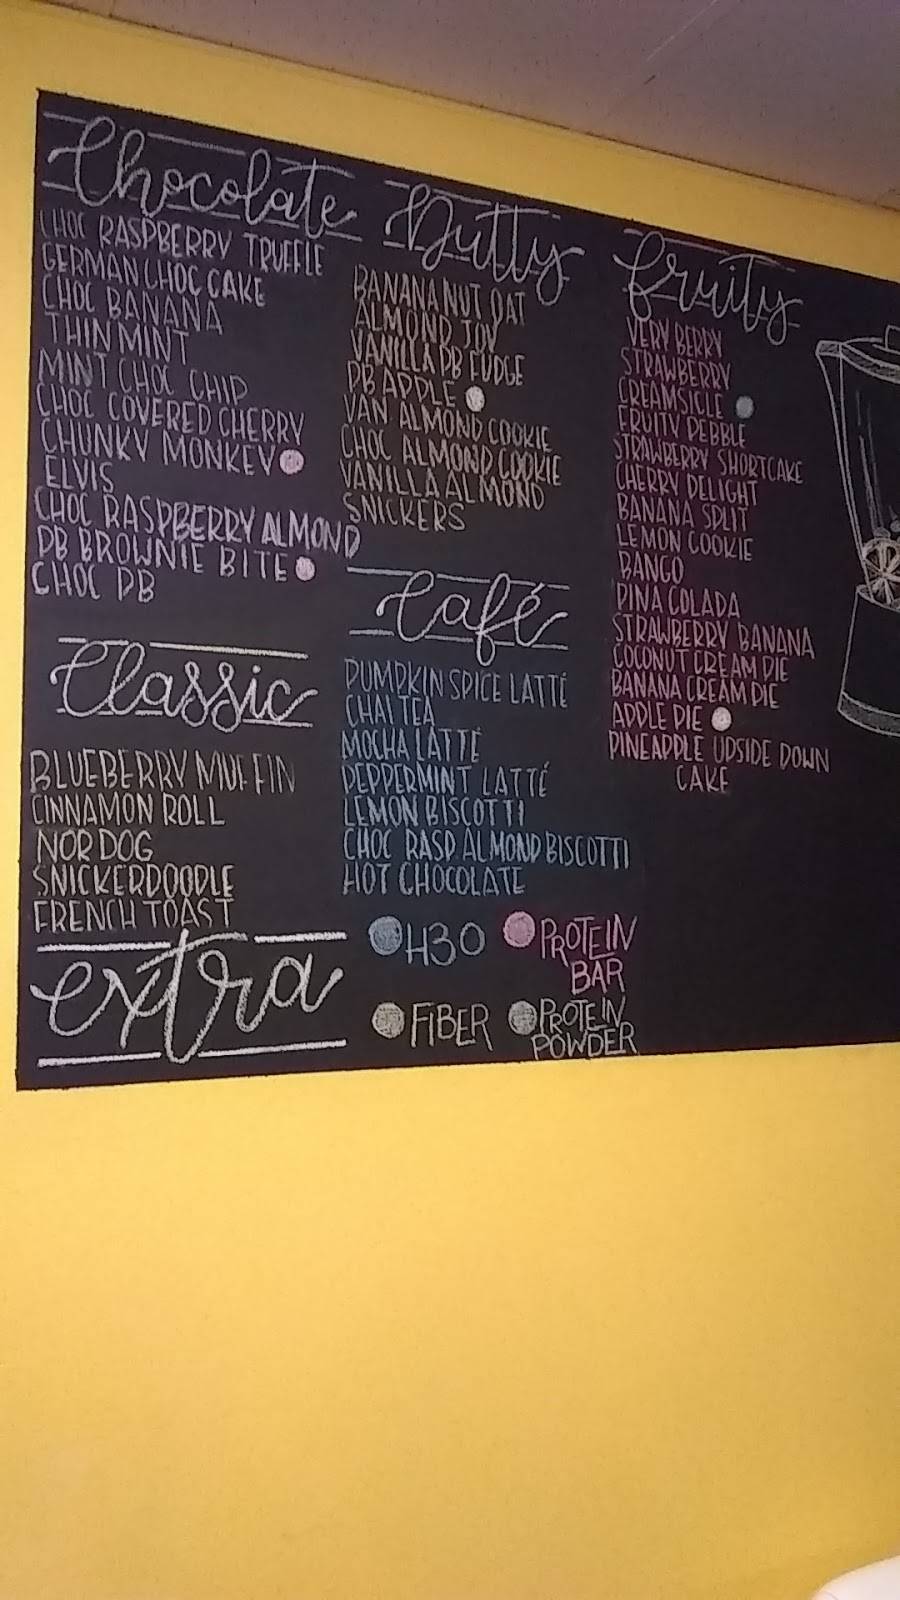 Chocolate
CHOC RASPBERRY TRUFFLE
GERMAN CHOC CAKE
CHOC BANANA
THIN MINT
MINT CHOC CHIP
CHOC COVERED CHERRY
CHUNKY MONKEY
ELVIS
CHOC RASPBERRY ALMOND
PB BROWNIE BITE
CHOC PB
Classic
BLUEBERRY MUFFIN
CINNAMON ROLL
NOR DOG
SNICKERDOODLE
FRENCH TOAST
Nutty
BANANA NUT OAT
ALMOND JOY
VANILLA PB FUDGE
PB APPLE
VAN ALMOND COOKIE
CHOC ALMOND COOKIE
VANILLA ALMOND
SNICKERS
Café
PUMPKIN SPICE LATTÉ
CHAI TEA
MOCHA LATTÉ
PEPPERMINT LATTÉ
LEMON BISCOTTI
CHOC RASP. ALMOND BISCOTTI
HOT CHOCOLATE
fruity
VERY BERRY
STRAWBERRY
CREAMSICLE
FRUITY PEBBLE
STRAWBERRY SHORTCAKE
CHERRY DELIGHT
BANANA SPLIT
LEMON COOKIE
BANGO
PINA COLADA
STRAWBERRY BANANA
COCONUT CREAM PIE
BANANA CREAM PIE
APPLE PIE
PINEAPPLE UPSIDE DOWN
CAKE
extra
H3O
PROTEIN
BAR
FIBER
PROTEIN
POWDER